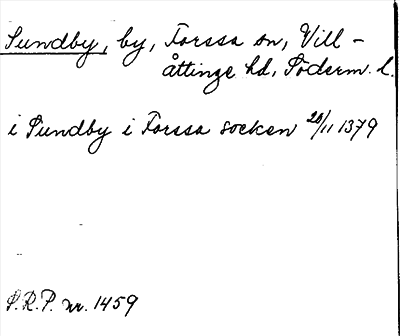 Sundby, by, Forssa sn, Vill-
åttinge hd, Söderm. l.
i Sundby i Forssa socken 20/11 1379
S.R.P. nr. 1459